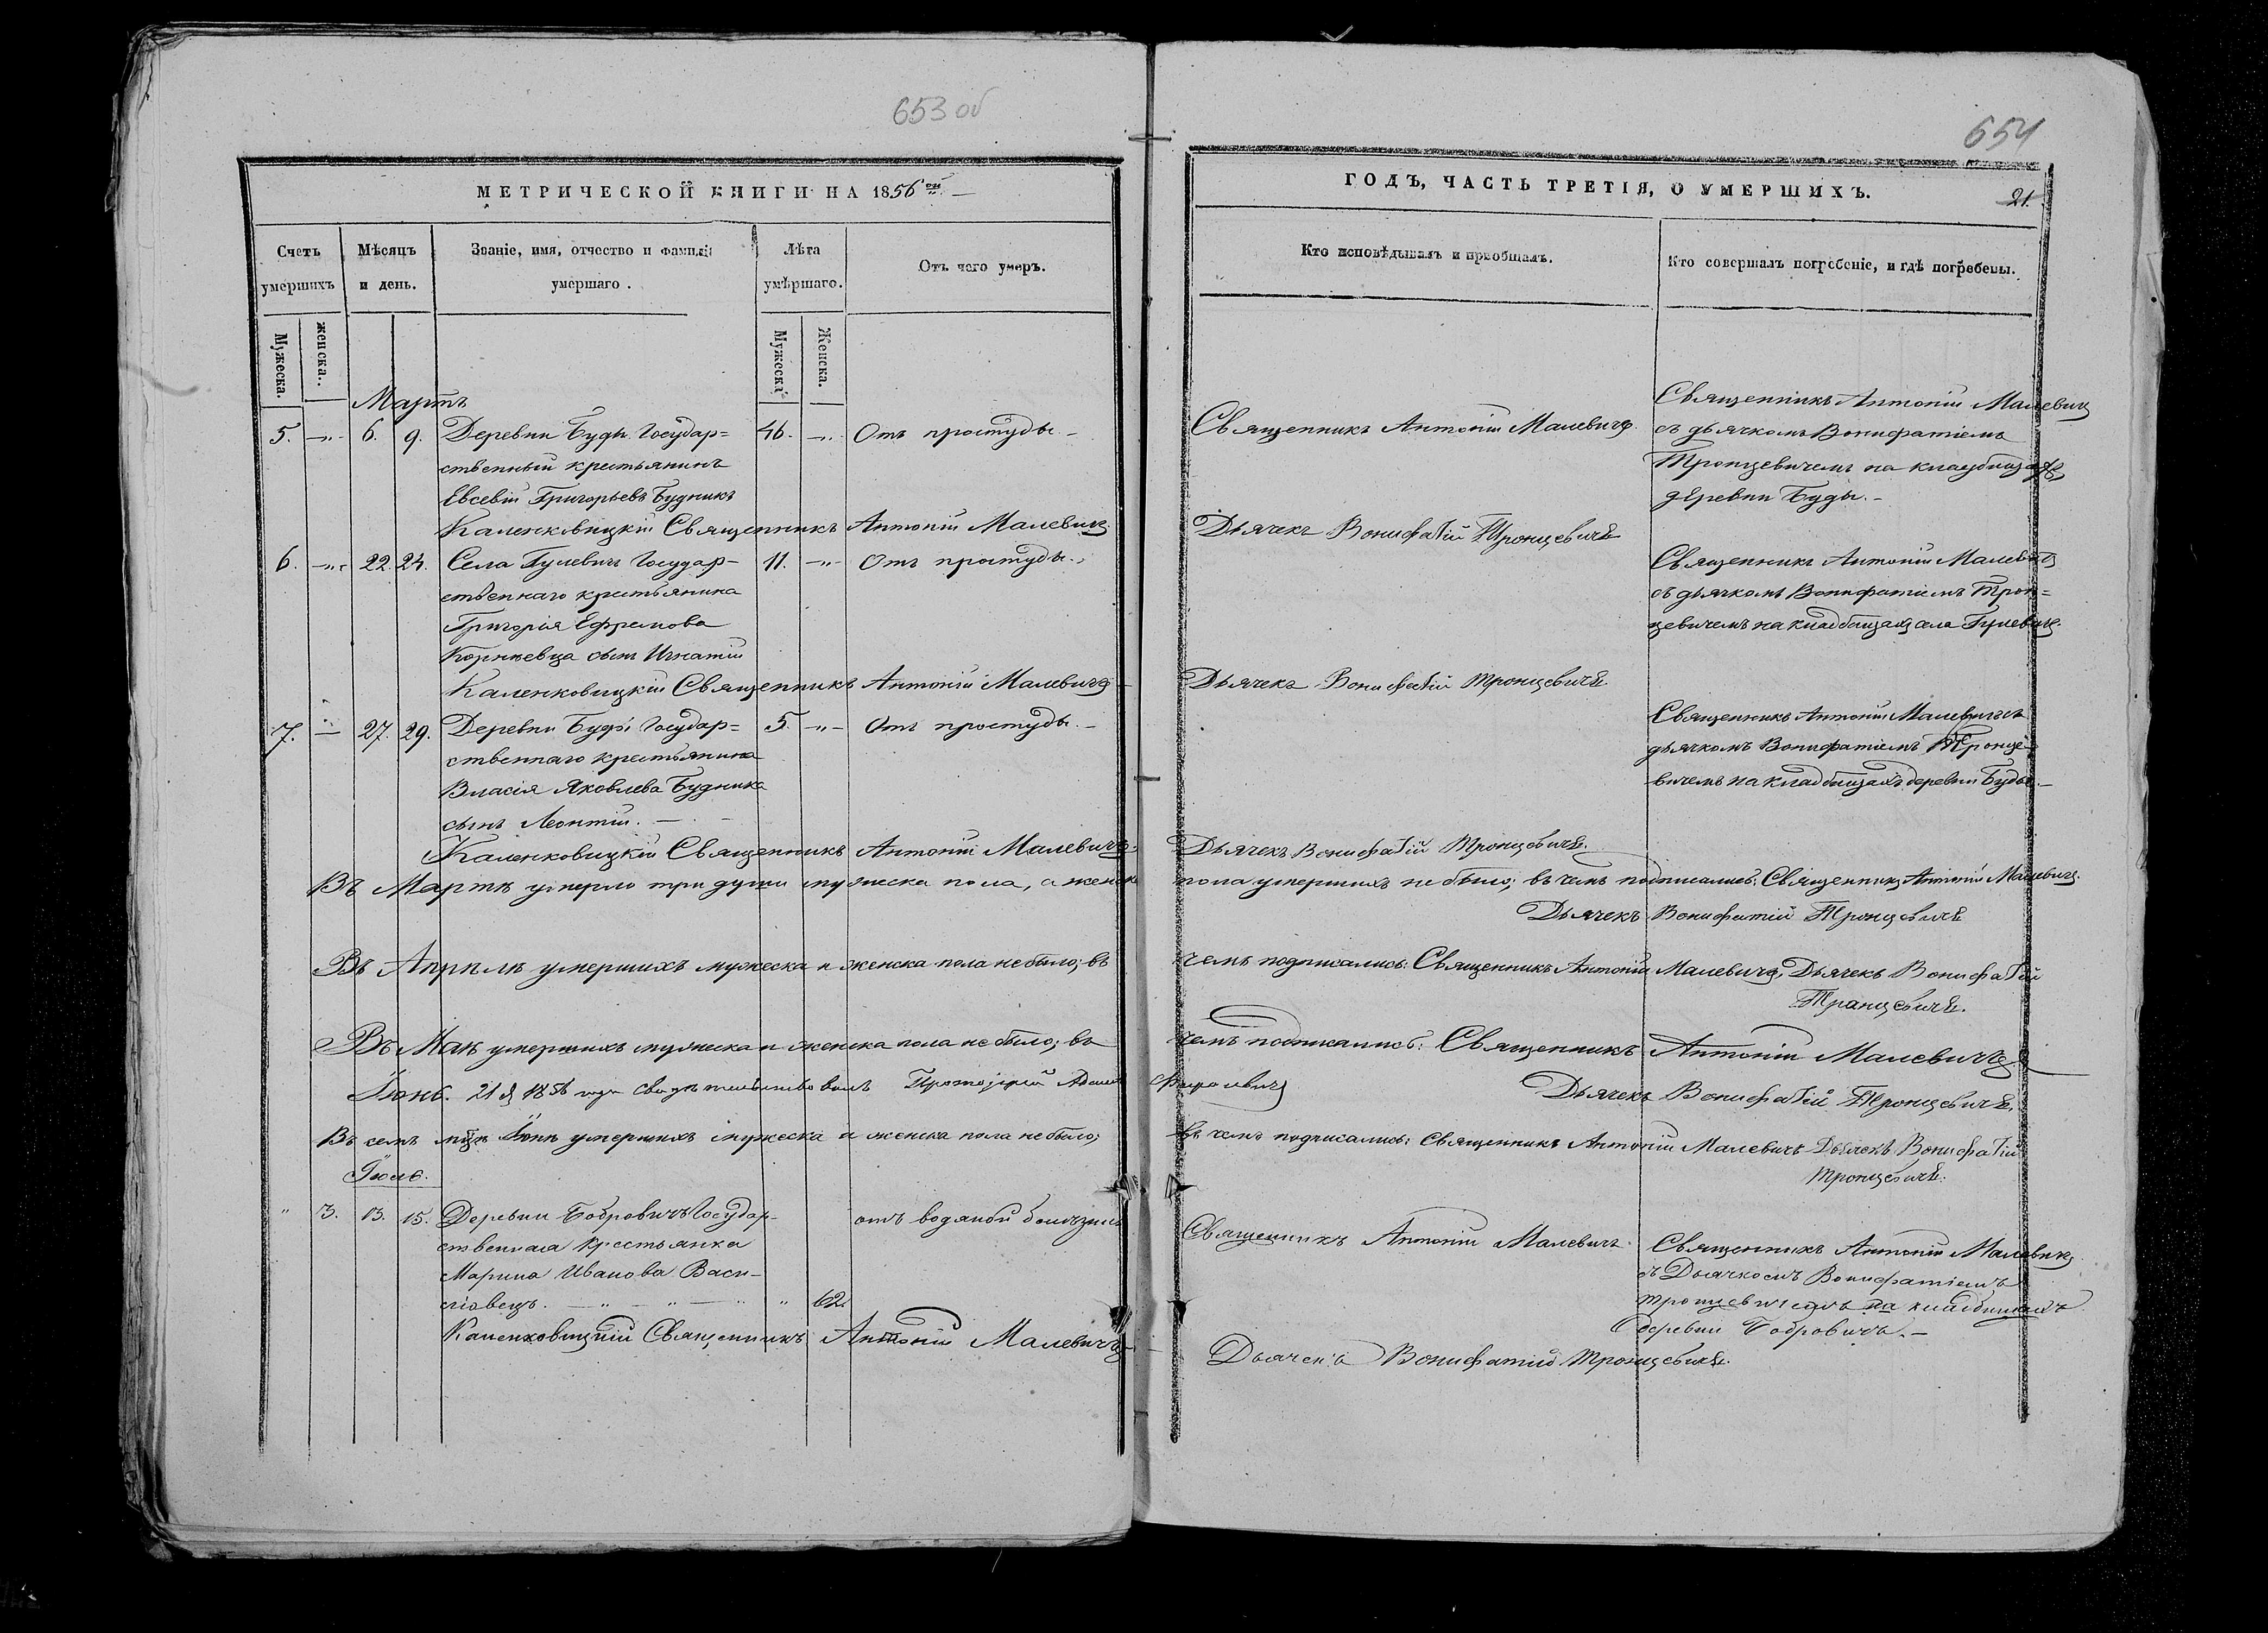 653 об
МЕТРИЧЕСКОЙ КНИГИ НА 1856 ой
Счетъ умершихъ
Мѣсяцъ и день.
Званіе, имя, отчество и фамилія умершаго.
Лѣта умѣршаго.
Отъ чего умеръ.
Мужеска.
женска.
Мужеска
Женска.
Мартъ
5. 6. 9. Деревни Буды Государ= 46. Отъ простуды.
ственный крестьянинъ
Евсевій Григорьевъ Будникъ
Каленковицкій Священникъ Антоній Малевичъ
6. 22. 24. Села Гулевичъ Государ- 11. Отъ простуды.
ственнаго крестьянина
Григорія Ефремова
сынъ Игнатій
Каленковицкій Священникъ Антоній Малевичъ
7. 27. 29. Деревни Буды Государ= 5. Отъ простуды.
ственнаго крестьянина
Власія Яковлева Будника
сынъ Леонтій.
Каленковицкій Священникъ Антоній Малевичъ
Въ Мартѣ умерло три души мужеска пола, а женска
Въ Апрѣлѣ умершихъ мужеска и женска пола не было; въ
Въ Маѣ умершихъ мужеска и женска пола не было; въ
Іюнь. 21 д 1856 года свидѣтельствовалъ Протоіерей
Въ семъ м-цѣ Іюнѣ умершихъ мужеска и женска пола не было;
Іюль.
" 3. 13. 15. Деревни Бобровичъ Государ- отъ водяной болѣзни
ственная крестьянка
Марина Иванова Васи-
62.
Каленковицкій Священникъ Антоній Малевичъ
654
ГОДЪ, ЧАСТЬ ТРЕТІЯ, О УМЕРШИХЪ.
21.
Кто исповѣдывалъ и пріобщалъ.
Кто совершалъ погребеніе, и гдѣ погребены.
Священникъ Антоній Малевичъ
Священникъ Антоній Малевичъ
съ дьячкомъ Вонифатіемъ
Тронцевичемъ на кладбищахъ
деревни Буды.
Дьячекъ Вонифатій Тронцевичъ
Священникъ Антоній Малевичъ
съ дьячкомъ Вонифатіемъ Трон=
цевичемъ на кладбищахъ села Гулевичъ.
Дьячекъ Вонифатій Тронцевичъ.
Священникъ Антоній Малевичъ съ
дьячкомъ Вонифатіемъ Тронце-
вичемъ на кладбищахъ деревни Буды.
Дьячекъ Вонифатій Тронцевичъ.
пола умершихъ не было; въ чемъ подписались: Священникъ Антоній Малевичъ.
Дьячекъ Вонифатій Тронцевичъ
чемъ подписались: Священникъ Антоній Малевичъ, Дьячекъ Вонифатій
Тронцевичъ.
чемъ подписались: Священникъ Антоній Малевичъ
Дьячекъ Вонифатій Тронцевичъ.
въ чемъ подписались: Священникъ Антоній Малевичъ Дьячекъ Вонифатій
Тронцевичъ.
Священникъ Антоній Малевичъ.
Священникъ Антоній Малевичъ
съ Дьячкомъ Вонифатіемъ
Тронцевичемъ на кладбищахъ
деревни Бобровичъ.
Дьячекъ Вонифатій Тронцевичъ.